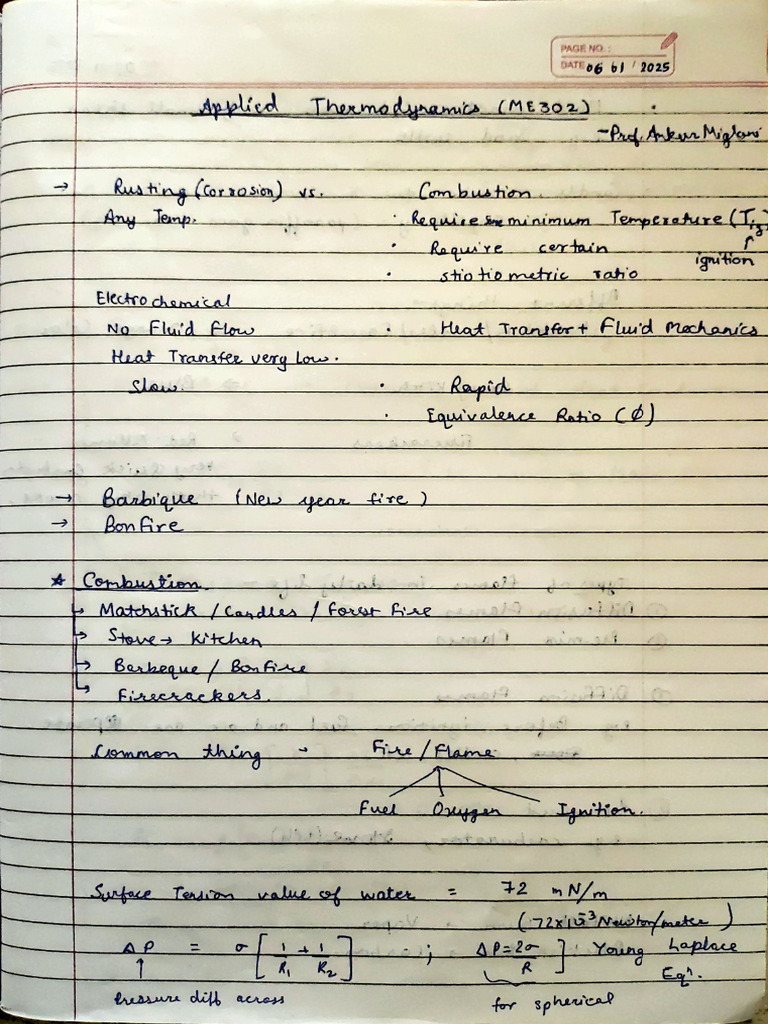 PAGE NO.:
DATE 06 01 / 2025
Applied Thermodynamics (ME302)
- Prof. Ankur Miglani
→ Rusting (Corrosion) vs. Combustion
Any Temp. · Require minimum Temperature (Tig)
· Require certain ↑ ignition
· stiotiometric ratio
Electrochemical
No Fluid Flow · Heat Transfer + Fluid Mechanics
Heat Transfer very Low.
Slow. · Rapid
· Equivalence Ratio (Ø)
→ Barbique (New year fire)
→ Bonfire
★ Combustion
↳ Matchstick / Candles / Forest Fire
↳ Stove → Kitchen
↳ Barbeque / Bonfire
↳ Firecrackers.
Common thing - Fire / Flame
Fuel Oxygen Ignition.
Surface Tension value of water = 72 mN/m
(72x10⁻³ Newton/meter)
ΔP = σ [1/R₁ + 1/R₂] ; ΔP = 2σ/R ] Young Laplace
Eqⁿ.
↑
Pressure diff across for spherical